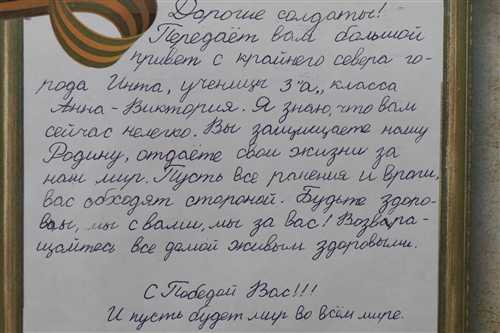 Дорогие солдаты!
Передаёт вам большой
привет с крайнего севера го-
рода Инта, ученицы 3 "а", класса
Анна-Виктория. Я знаю, что вам
сейчас нелегко. Вы защищаете нашу
Родину, отдаёте свои жизни за
наш мир. Пусть все ранения и враги,
вас обходят стороной. Будьте здоро-
вы, мы с вами, мы за вас! Возвра-
щайтесь все домой живым здоровыми.
С Победой Вас!!!
И пусть будет мир во всём мире.